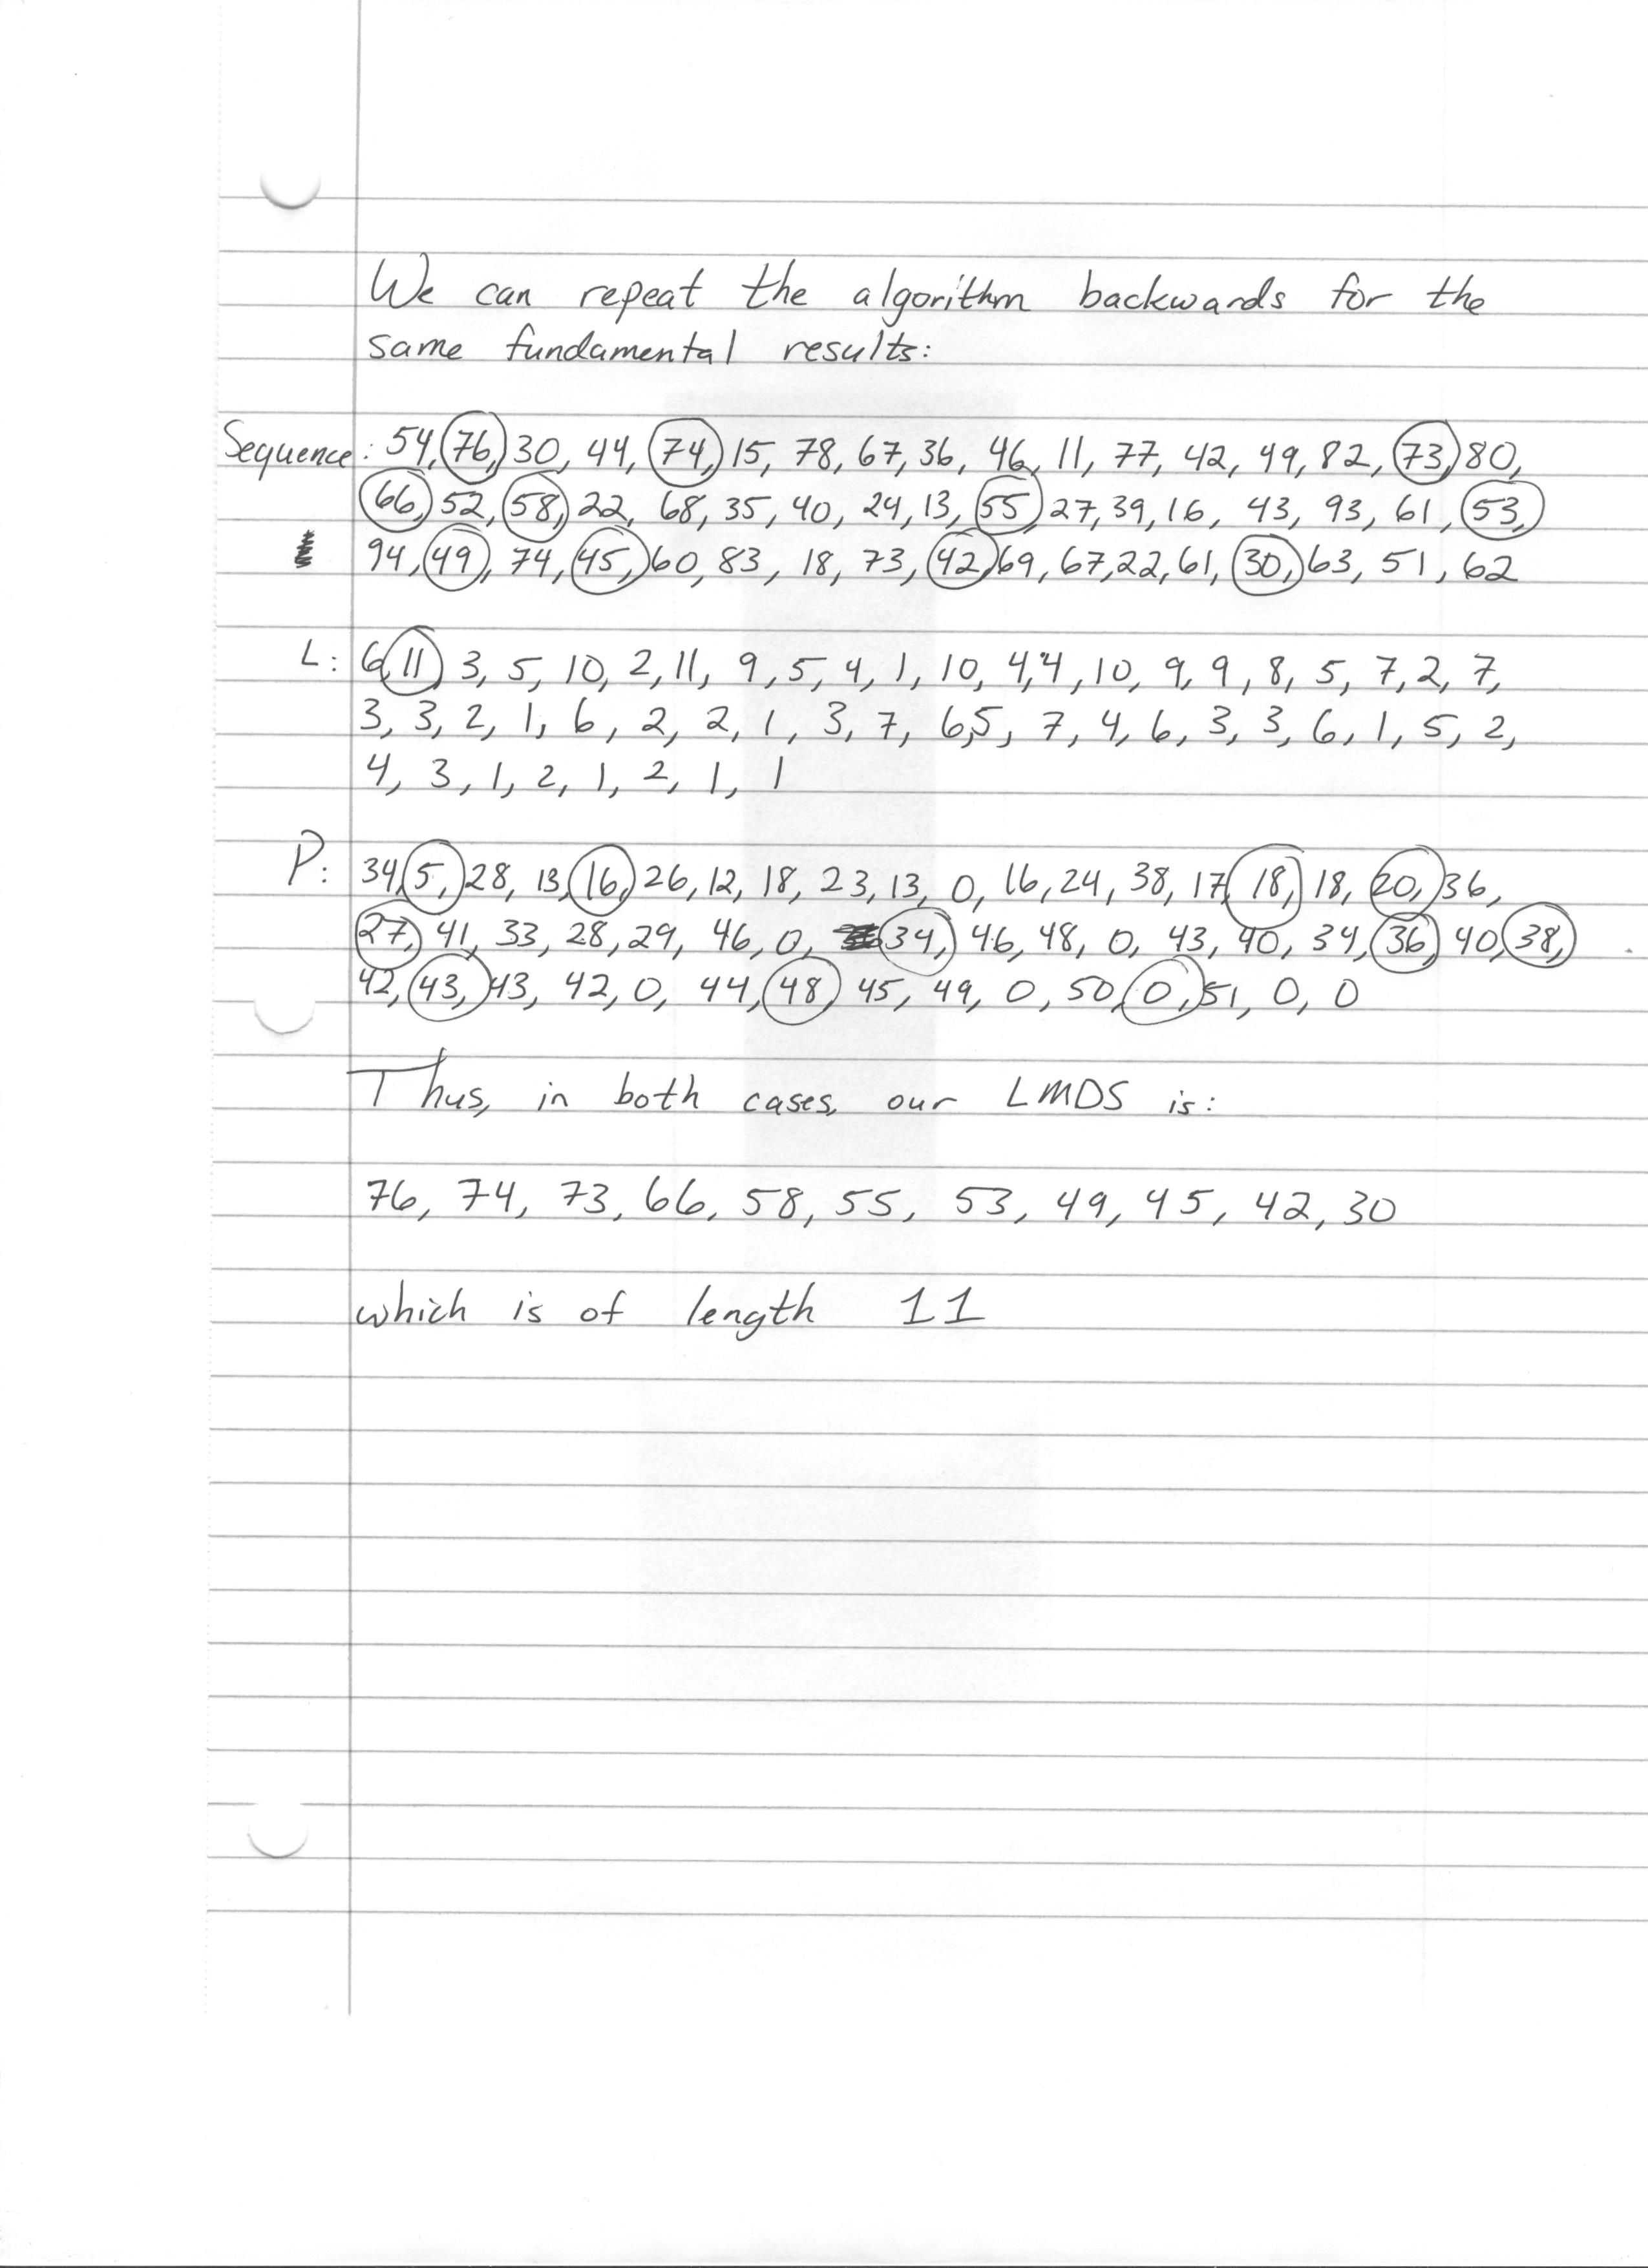 We can repeat the algorithm backwards for the
same fundamental results:
Sequence: 54, 76, 30, 44, 74, 15, 78, 67, 36, 46, 11, 77, 42, 49, 82, 73, 80,
66, 52, 58, 22, 68, 35, 40, 24, 13, 55, 27, 39, 16, 43, 93, 61, 53,
94, 49, 74, 45, 60, 83, 18, 73, 42, 69, 67, 22, 61, 30, 63, 51, 62
L: 6, 11, 3, 5, 10, 2, 11, 9, 5, 4, 1, 10, 4, 4, 10, 9, 9, 8, 5, 7, 2, 7,
3, 3, 2, 1, 6, 2, 2, 1, 3, 7, 6, 5, 7, 4, 6, 3, 3, 6, 1, 5, 2,
4, 3, 1, 2, 1, 2, 1, 1
P: 34, 5, 28, 13, 16, 26, 12, 18, 23, 13, 0, 16, 24, 38, 17, 18, 18, 20, 36,
27, 41, 33, 28, 29, 46, 0, 34, 46, 48, 0, 43, 40, 34, 36, 40, 38,
42, 43, 43, 42, 0, 44, 48, 45, 49, 0, 50, 0, 51, 0, 0
Thus, in both cases, our LMDS is:
76, 74, 73, 66, 58, 55, 53, 49, 45, 42, 30
which is of length 11